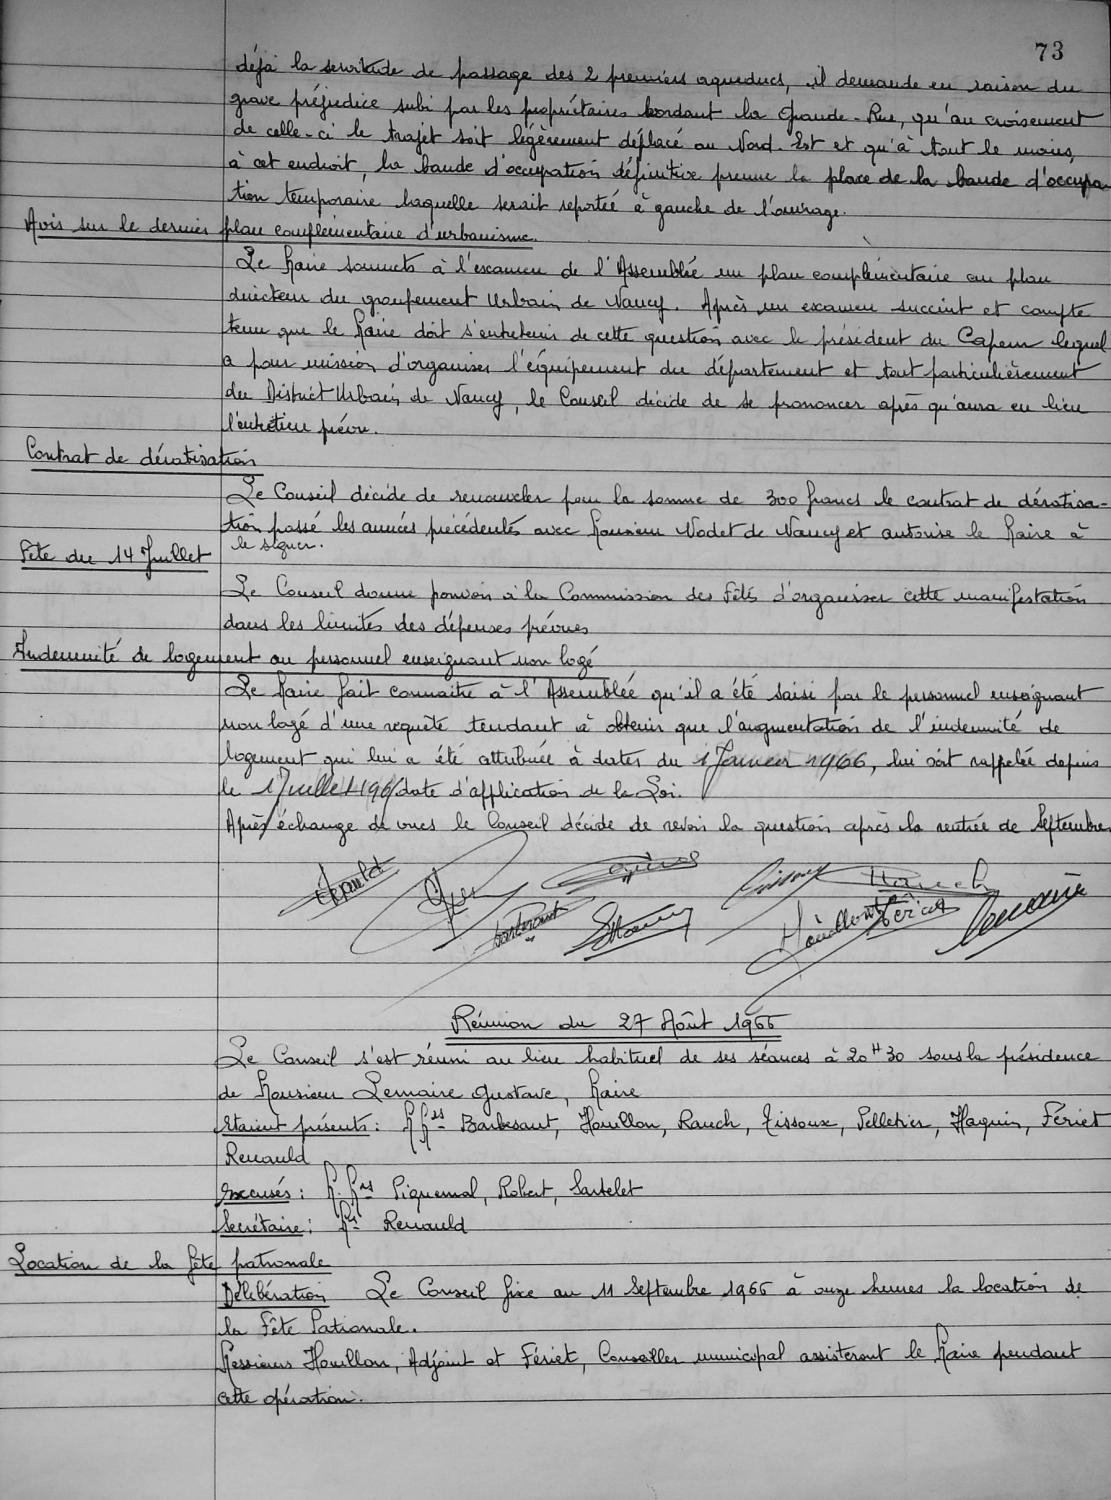 73
déjà la servitude de passage des 2 premiers aqueducs, il demande en raison du
grave préjudice subi par les propriétaires bordant la Grande-Rue, qu'au croisement
de celle-ci le trajet soit légèrement déplacé au Nord-Est et qu'à tout le moins,
à cet endroit, la bande d'occupation définitive prenne la place de la bande d'occupa-
tion temporaire laquelle serait reportée à gauche de l'ouvrage.
Avis sur le dernier plan complémentaire d'urbanisme.
Le Maire soumets à l'examen de l'Assemblée un plan complémentaire au plan
directeur du groupement Urbain de Nancy. Après un examen succint et compte
tenu que le Maire doit s'entretenir de cette question avec le président du Capem lequel
a pour mission d'organiser l'équipement du département et tout particulièrement
du District Urbain de Nancy, le Conseil décide de se prononcer après qu'aura eu lieu
l'entretien prévu.
Contrat de dératisation
Le Conseil décide de renouveler pour la somme de 300 francs le contrat de dératisa-
tion passé les années précédentes avec Monsieur Nodet de Nancy et autorise le Maire à
le signer.
Fête du 14 Juillet
Le Conseil donne pouvoir à la Commission des Fêtes d'organiser cette manifestation
dans les limites des dépenses prévues
Indemnité de logement au personnel enseignant non logé
Le Maire fait connaitre à l'Assemblée qu'il a été saisi par le personnel enseignant
non logé d'une requête tendant à obtenir que l'augmentation de l'indemnité de
logement qui lui a été attribuée à dater du 1 Janvier 1966, lui soit rappelée depuis
le 1 Juillet 196 date d'application de la Loi.
Après échange de vues le Conseil décide de revoir la question après la rentrée de Septembre
Renauld
Barbesant
Rauch
Houillon Fériet
Lemaire
Réunion du 27 Août 1966
Le Conseil s'est réuni au lieu habituel de ses séances à 20H30 sous la présidence
de Monsieur Lemaire Gustave, Maire
Etaient présents : M Mrs Barbesant, Houillon, Rauch, Tissoux, Pelletier, Haquin, Fériet
Renauld
Excusés : M. Mrs Piquemal, Robert, Sartelet
Secrétaire : Mr Renauld
Location de la fête patronale
Délibération Le Conseil fixe au 11 Septembre 1966 à onze heures la location de
la Fête Patronale.
Messieurs Houillon, Adjoint et Fériet, Conseiller municipal assisteront le Maire pendant
cette opération.